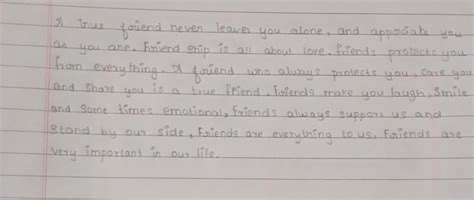 A true friend never leaves you alone, and appriciate you
as you are. Friend ship is all about love. friends protects you
from everything. A friend who always protects you, Care you
and share you is a true friend. Friends make you laugh, Smile
and Some times emotional, Friends always support us and
Stand by our side, Friends are everything to us, Friends are
very important in our life.